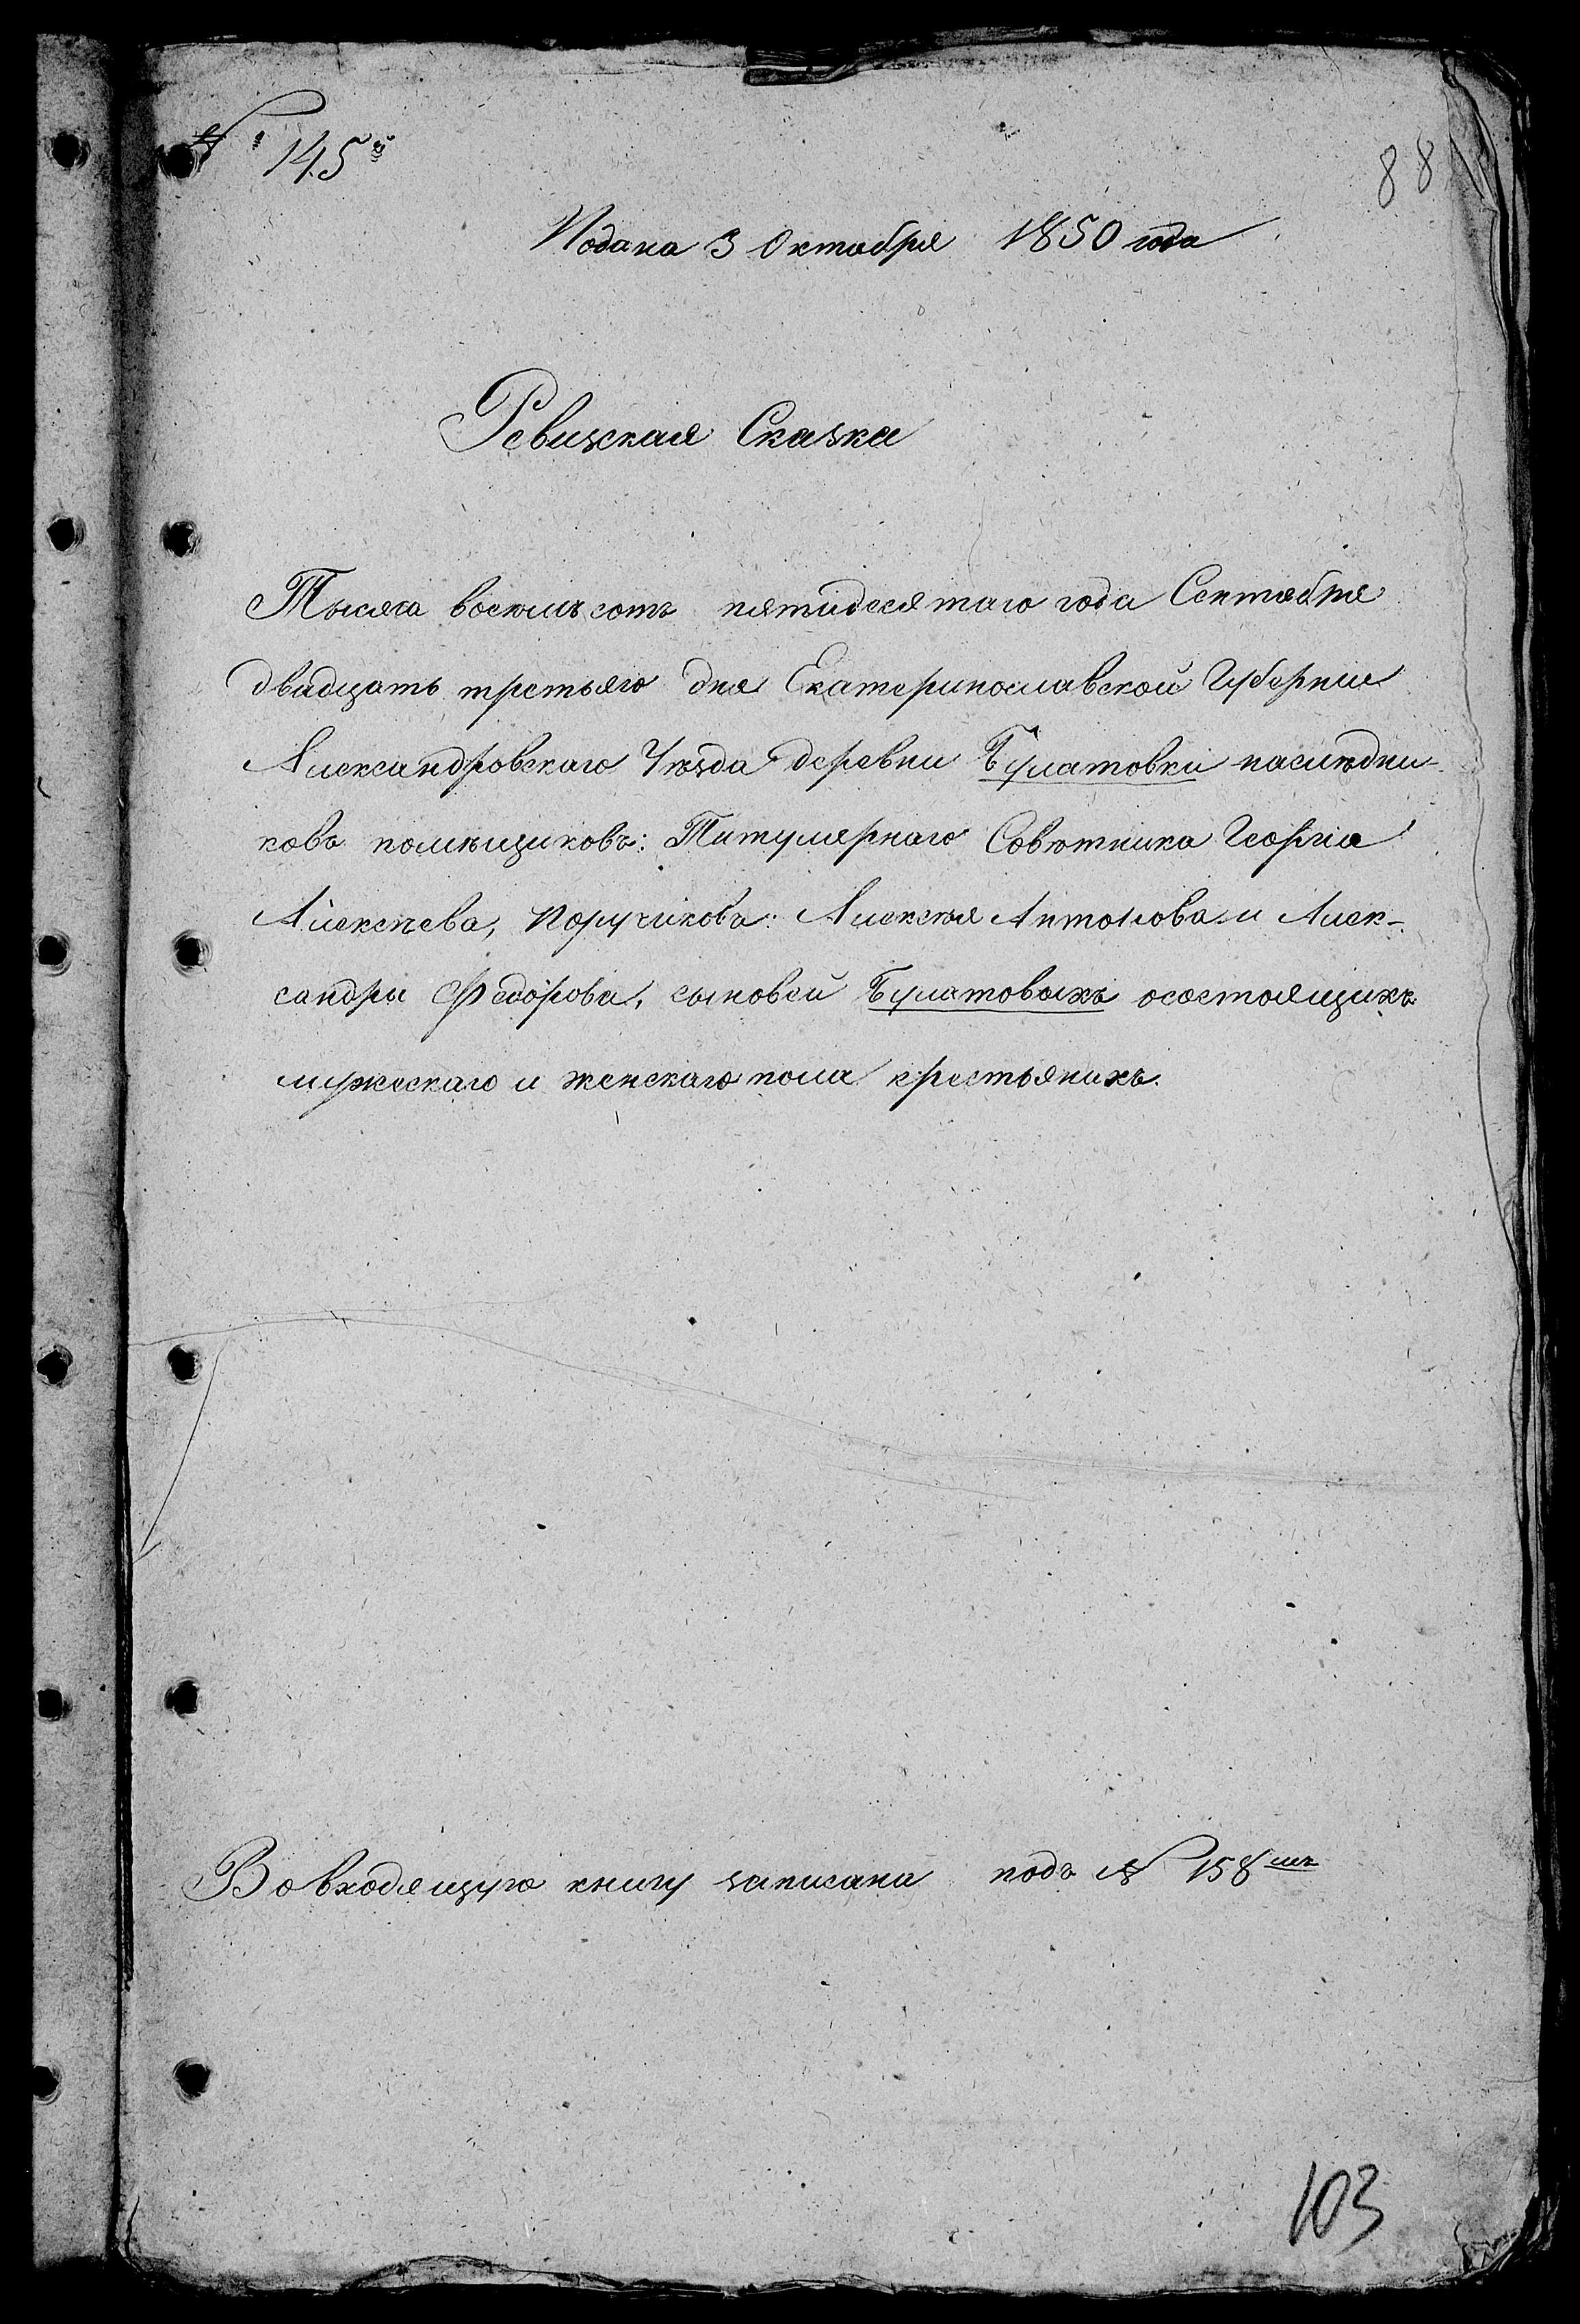 № 145й
88
Подана 3 Октября 1850 года
Ревизская Сказка
Тысяча восемьсотъ пятидесятаго года Сентября
двадцать третьяго дня Екатеринославской Губерніи
Александровскаго Уѣзда деревни Булатовки наслѣдни-
ковъ помѣщиковъ: Титулярнаго Совѣтника Георгія
Алексѣева, Поручиковъ: Алексѣя Антонова и Алек-
сандра Федорова, сыновей Булатовыхъ осостоящихъ
мужескаго и женскаго пола крестьянахъ.
Во входящую книгу записана подъ № 158мъ
103